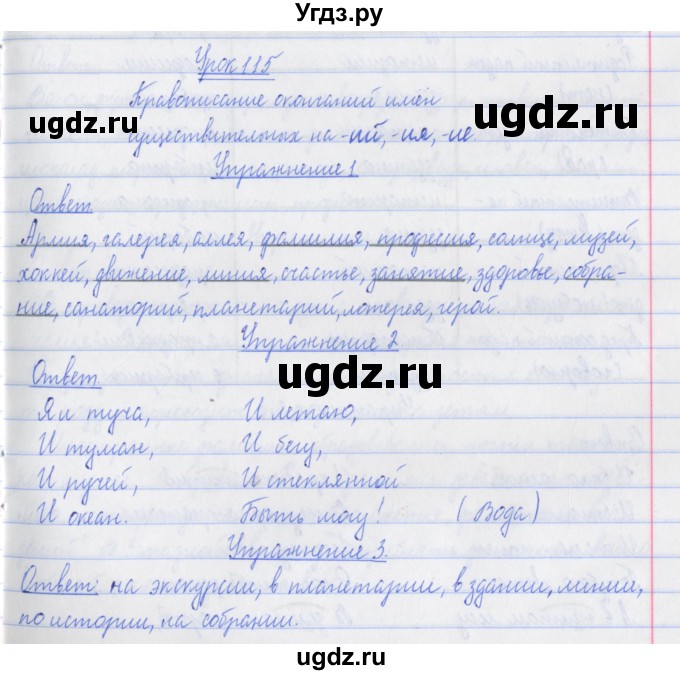 Угдз.ру
Урок 115
Правописание окончаний имён
существительных на -ий, -ия, -ие
ugdz.ru
ugdz.ru
Упражнение 1
Ответ.
Армия, галерея, аллея, фамилия, профессия, солнце, музей,
хоккей, движение, линия, счастье, занятие, здоровье, собра-
ние, санаторий, планетарий, лотерея, герой.
Упражнение 2
ugdz.ru
Ответ.
Я и туча, И летаю,
И туман, И бегу,
И ручей, И стеклянной
И океан. Быть могу! (Вода)
Упражнение 3.
Ответ: на экскурсии, в планетарии, в здании, линии,
по истории, на собрании.
ugdz.ru